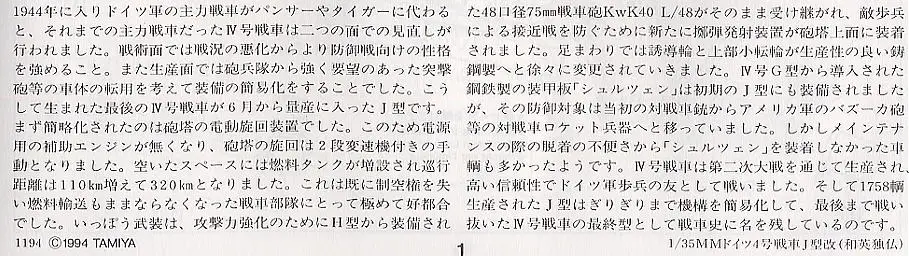 1944年に入りドイツ軍の主力戦車がパンサーやタイガーに代わる
と、それまでの主力戦車だったⅣ号戦車は二つの面での見直しが
行われました。戦術面では戦況の悪化からより防御戦向けの性格
を強めること。また生産面では砲兵隊から強く要望のあった突撃
砲等の車体の転用を考えて装備の簡易化をすることでした。こう
して生まれた最後のⅣ号戦車が6月から量産に入ったJ型です。
まず簡略化されたのは砲塔の電動旋回装置でした。このため電源
用の補助エンジンが無くなり、砲塔の旋回は2段変速機付きの手
動となりました。空いたスペースには燃料タンクが増設され巡行
距離は110km増えて320kmとなりました。これは既に制空権を失
い燃料輸送もままならなくなった戦車部隊にとって極めて好都合
でした。いっぽう武装は、攻撃力強化のためにH型から装備され
た48口径75mm戦車砲KwK40 L/48がそのまま受け継がれ、敵歩兵
による接近戦を防ぐために新たに擲弾発射装置が砲塔上面に装着
されました。足まわりでは誘導輪と上部小転輪が生産性の良い鋳
鋼製へと徐々に変更されていきました。Ⅳ号G型から導入された
鋼鉄製の装甲板「シュルツェン」は初期のJ型にも装備されました
が、その防御対象は当初の対戦車銃からアメリカ軍のバズーカ砲
等の対戦車ロケット兵器へと移っていました。しかしメインテナ
ンスの際の脱着の不便さから「シュルツェン」を装着しなかった車
輌も多かったようです。Ⅳ号戦車は第二次大戦を通じて生産され、
高い信頼性でドイツ軍歩兵の友として戦いました。そして1758輌
生産されたJ型はぎりぎりまで機構を簡易化して、最後まで戦い
抜いたⅣ号戦車の最終型として戦車史に名を残しているのです。
1194 ©1994 TAMIYA
1
1/35MMドイツ4号戦車J型改(和英独仏)